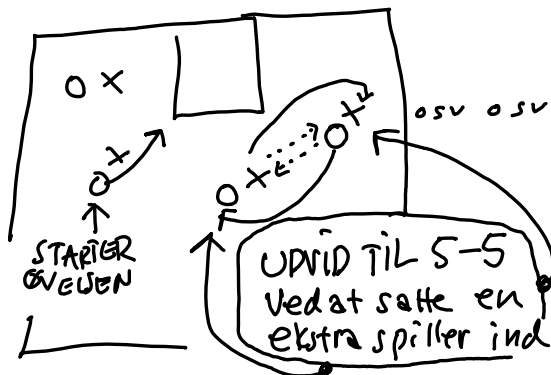 O X
X
OSV OSV
X
O
X
O
O
STARTER
ØVELSEN
UDVID TIL 5-5
Ved at sætte en
ekstra spiller ind